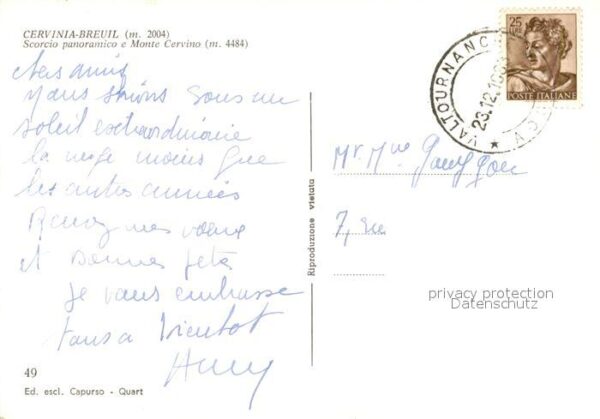 CERVINIA-BREUIL (m. 2004)
Scorcio panoramico e Monte Cervino (m. 4484)
25
POSTE ITALIANE
VALTOURNANC
23.12.19
Mes amis
Nous skions sous un
soleil extraordinaire
la neige moins que
les autres années
mes vœux
et bonnes fêtes
Je vous embrasse
tous a bientot
Mr Mme
7, rue
Riproduzione vietata
privacy protection
Datenschutz
49
Ed. escl. Capurso - Quart